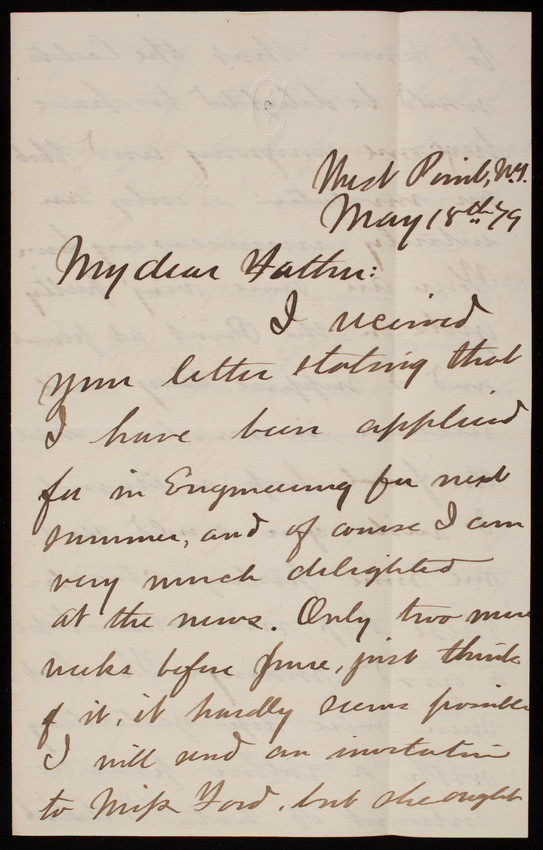 West Point, N.Y.
May 18th 79
My dear Father:
I received
your letter stating that
I have been applied
for in Engineering for next
summer, and of course I am
very much delighted
at the news. Only two more
weeks before June, just think
of it, it hardly seems possible
I will send an invitation
to Miss Ford, but she ought